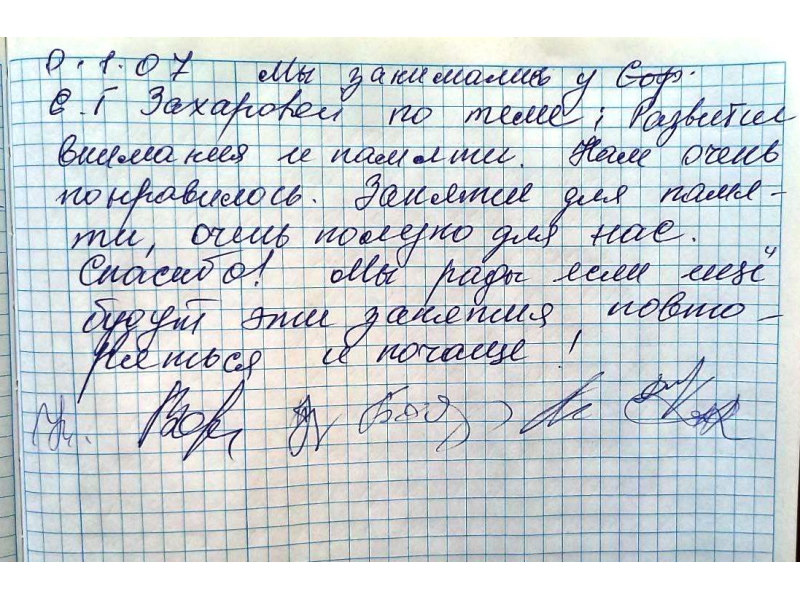 0.1.07 Мы занимались у Соф.
Е.Г Захаровой по теме; Развитие
внимания и памяти. Нам очень
понравилось. Занятие для памя-
ти, очень полезно для нас.
Спасибо! Мы рады если ещё
будут эти занятия повто-
ряться и почаще!